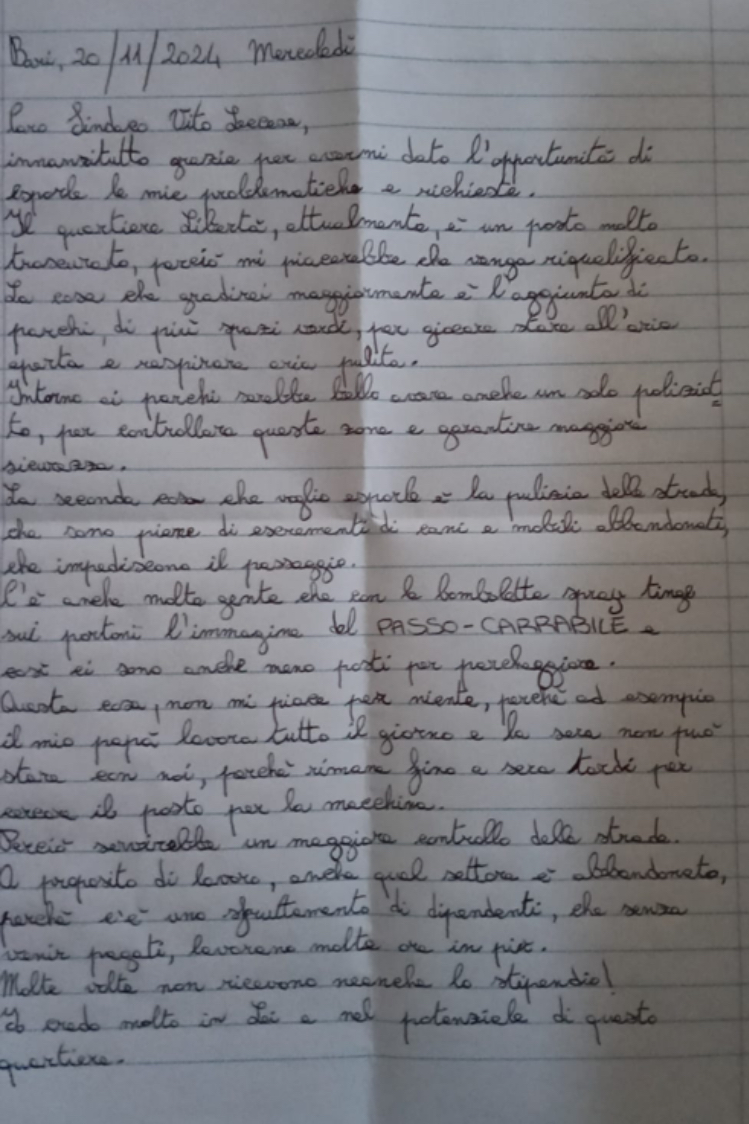 Bari, 20/11/2024 Mercoledì
Caro Sindaco Vito Leccese,
innanzitutto grazie per avermi dato l'opportunità di
esporle le mie problematiche e richieste.
Il quartiere Libertà, attualmente, è un posto molto
trascurato, perciò mi piacerebbe che venga riqualificato.
La cosa che gradirei maggiormente è l'aggiunta di
parchi, di più spazi verdi, per giocare stare all'aria
aperta e respirare aria pulita.
Intorno ai parchi sarebbe bello avere anche un solo poliziot
to, per controllare queste zone e garantire maggiore
sicurezza.
La seconda cosa che voglio esporle è la pulizia delle strade,
che sono piene di escrementi di cani e mobili abbandonati,
che impediscono il passaggio.
C'è anche molta gente che con le bombolette spray tinge
sui portoni l'immagine del PASSO-CARRABILE e
così ci sono anche meno posti per parcheggiare.
Questa cosa, non mi piace per niente, perché ad esempio
il mio papà lavora tutto il giorno e la sera non può
stare con noi, perché rimane fino a sera tardi per
cercare il posto per la macchina.
Perciò servirebbe un maggiore controllo delle strade.
A proposito di lavoro, anche quel settore è abbandonato,
perché c'è uno sfruttamento di dipendenti, che senza
venir pagati, lavorano molte ore in più.
Molte volte non ricevono neanche lo stipendio!
Io credo molto in Lei e nel potenziale di questo
quartiere.